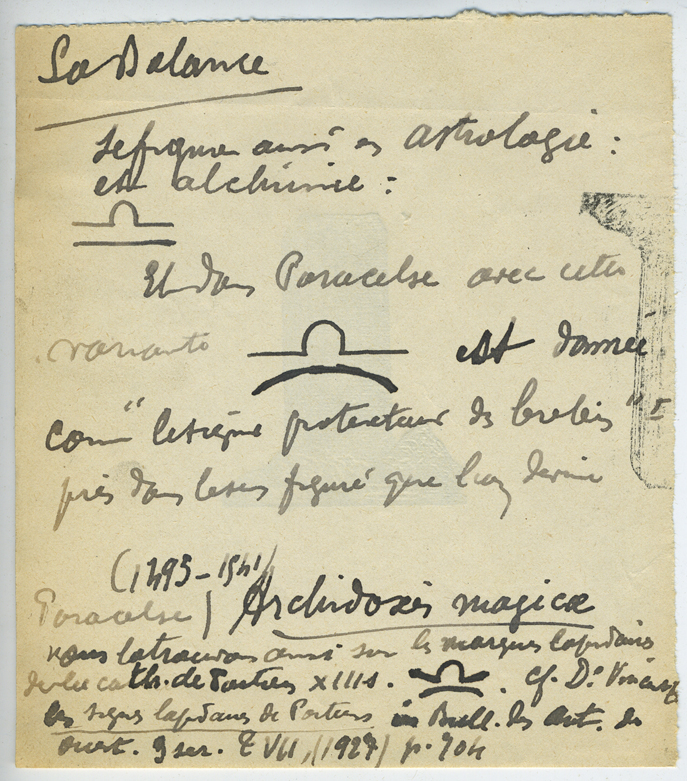 La Balance
se figure aussi en astrologie :
et alchimie :
Et dans Paracelse avec cette
variante est donnée
comm "le signe protecteur des brebis"
pris dans le sens figuré que l'on
(1493-1541)
Paracelse Archidoxis magicae
nous la trouvons aussi sur les marques lapidaires
de la cath. de Poitiers XIII s. . cf. Dr Vincent
les signes lapidaires de Poitiers in Bull. des Ant. de
ouest. 3 ser. T VII, (1927) p. 704